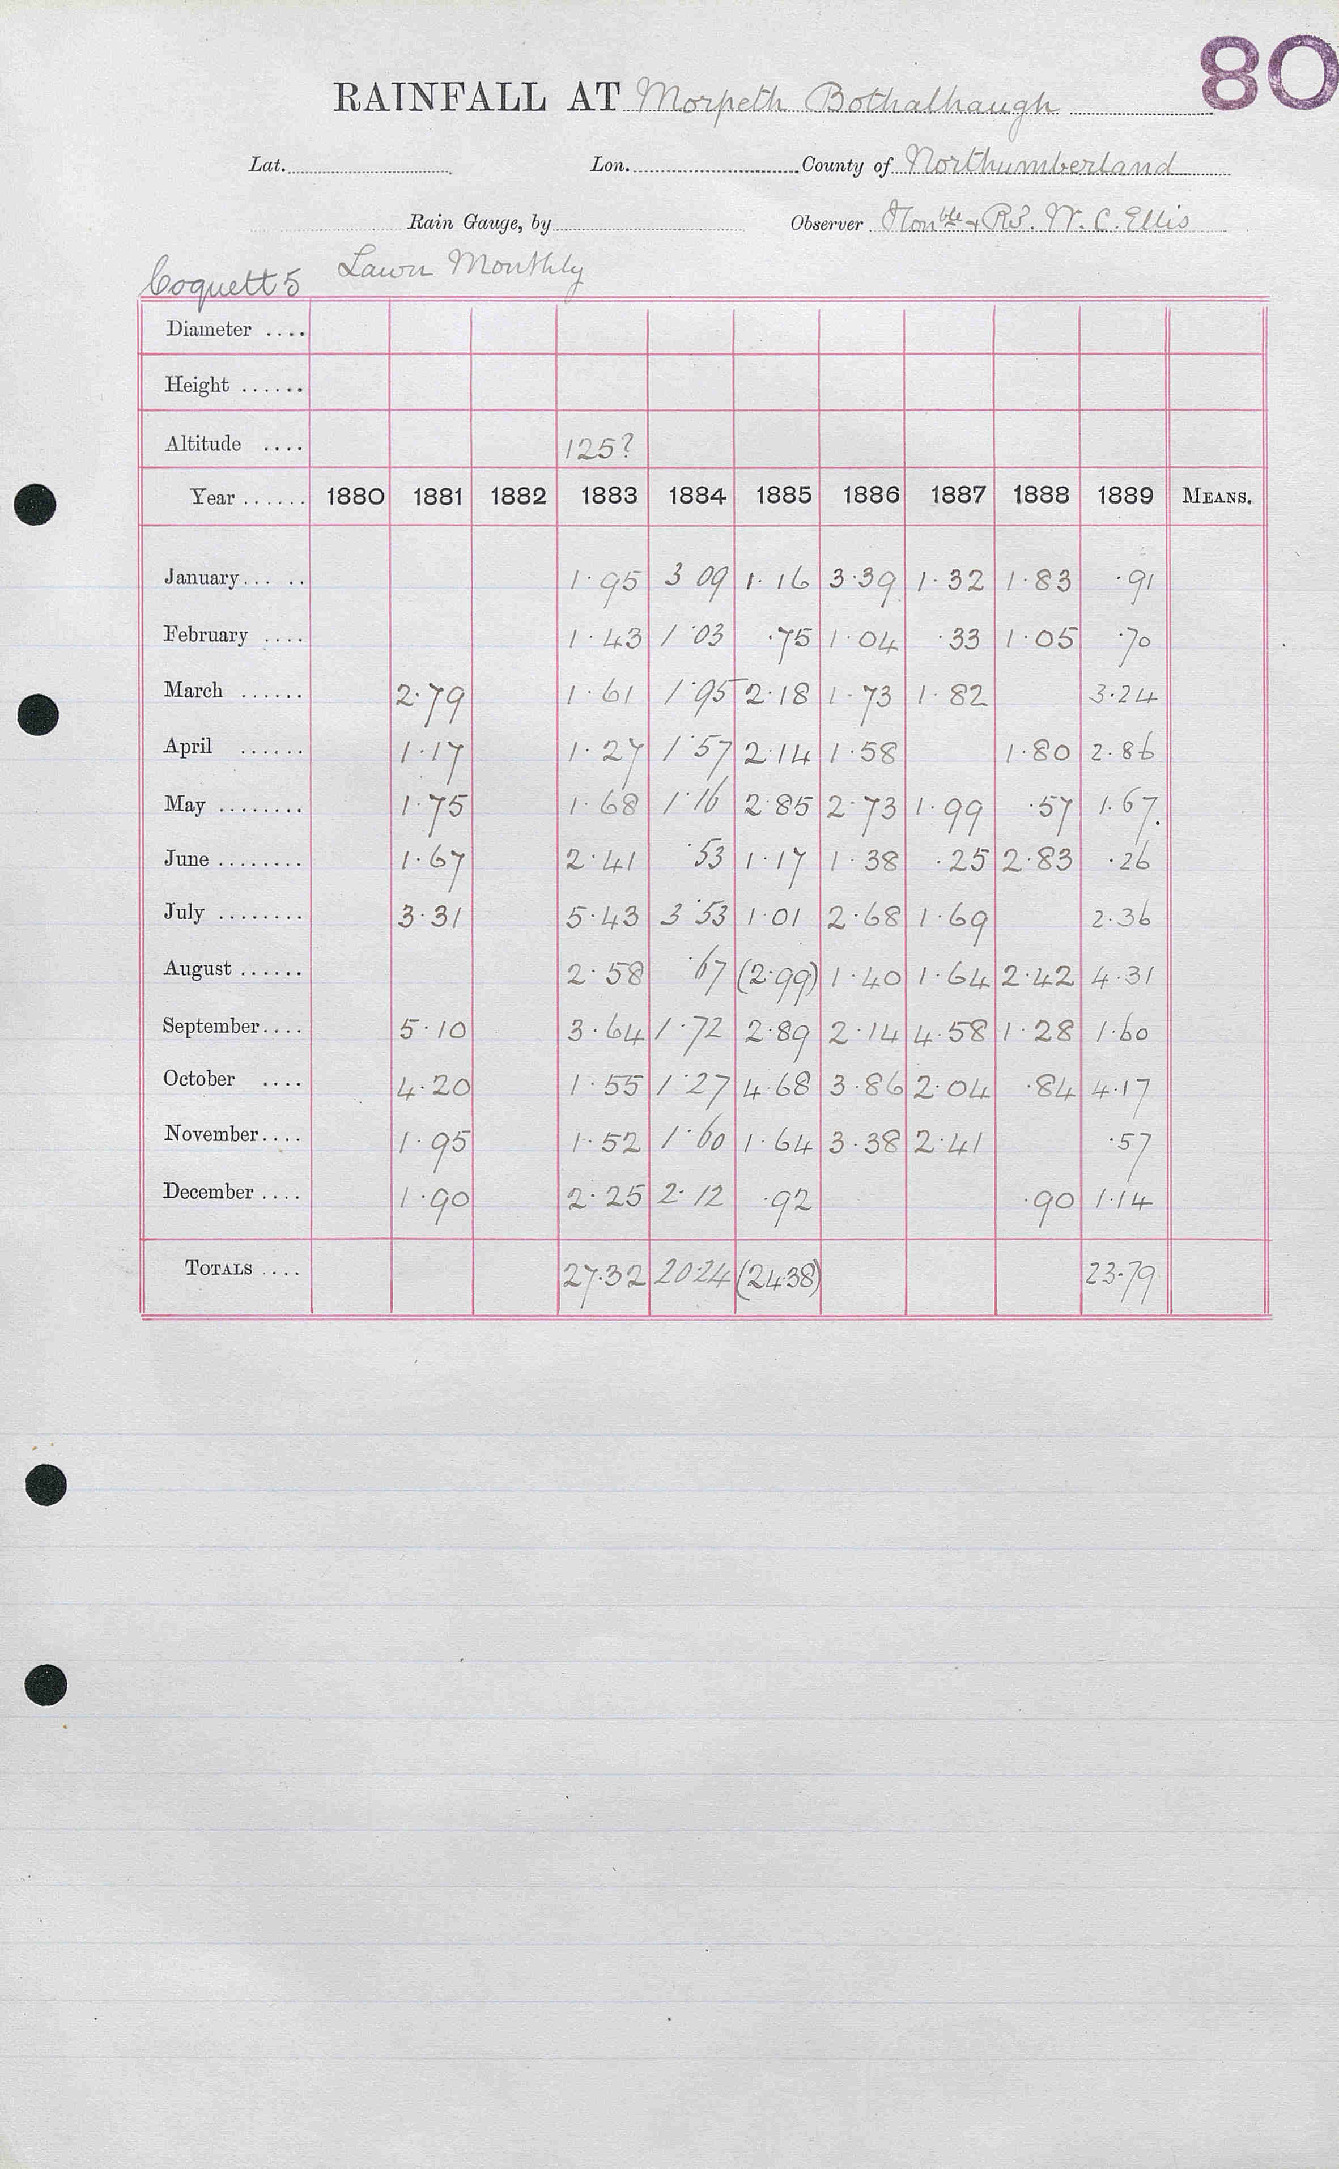 80
RAINFALL AT Morpeth Bothalhaugh
Lat. Lon. County of Northumberland
Rain Gauge, by Observer Hon ble & Rd. W. C. Ellis
Coquett 5 Lawn Monthly
Diameter ....
Height ......
Altitude .... 125?
Year ...... 1880 1881 1882 1883 1884 1885 1886 1887 1888 1889 MEANS.
January... .. 1.95 3 09 1.16 3.39 1.32 1.83 .91
February .... 1.43 1.03 .75 1.04 .33 1.05 .70
March ...... 2.79 1.61 1.95 2.18 1.73 1.82 3.24
April ...... 1.17 1.27 1.57 2.14 1.58 1.80 2.86
May ........ 1.75 1.68 1.16 2.85 2.73 1.99 .57 1.67.
June ........ 1.67 2.41 .53 1.17 1.38 .25 2.83 .26
July ........ 3.31 5.43 3.53 1.01 2.68 1.69 2.36
August ...... 2.58 .67 (2.99) 1.40 1.64 2.42 4.31
September.... 5.10 3.64 1.72 2.89 2.14 4.58 1.28 1.60
October .... 4.20 1.55 1.27 4.68 3.86 2.04 .84 4.17
November.... 1.95 1.52 1.60 1.64 3.38 2.41 .57
December .... 1.90 2.25 2.12 .92 .90 1.14
TOTALS .... 27.32 20.24 (24.38) 23.79